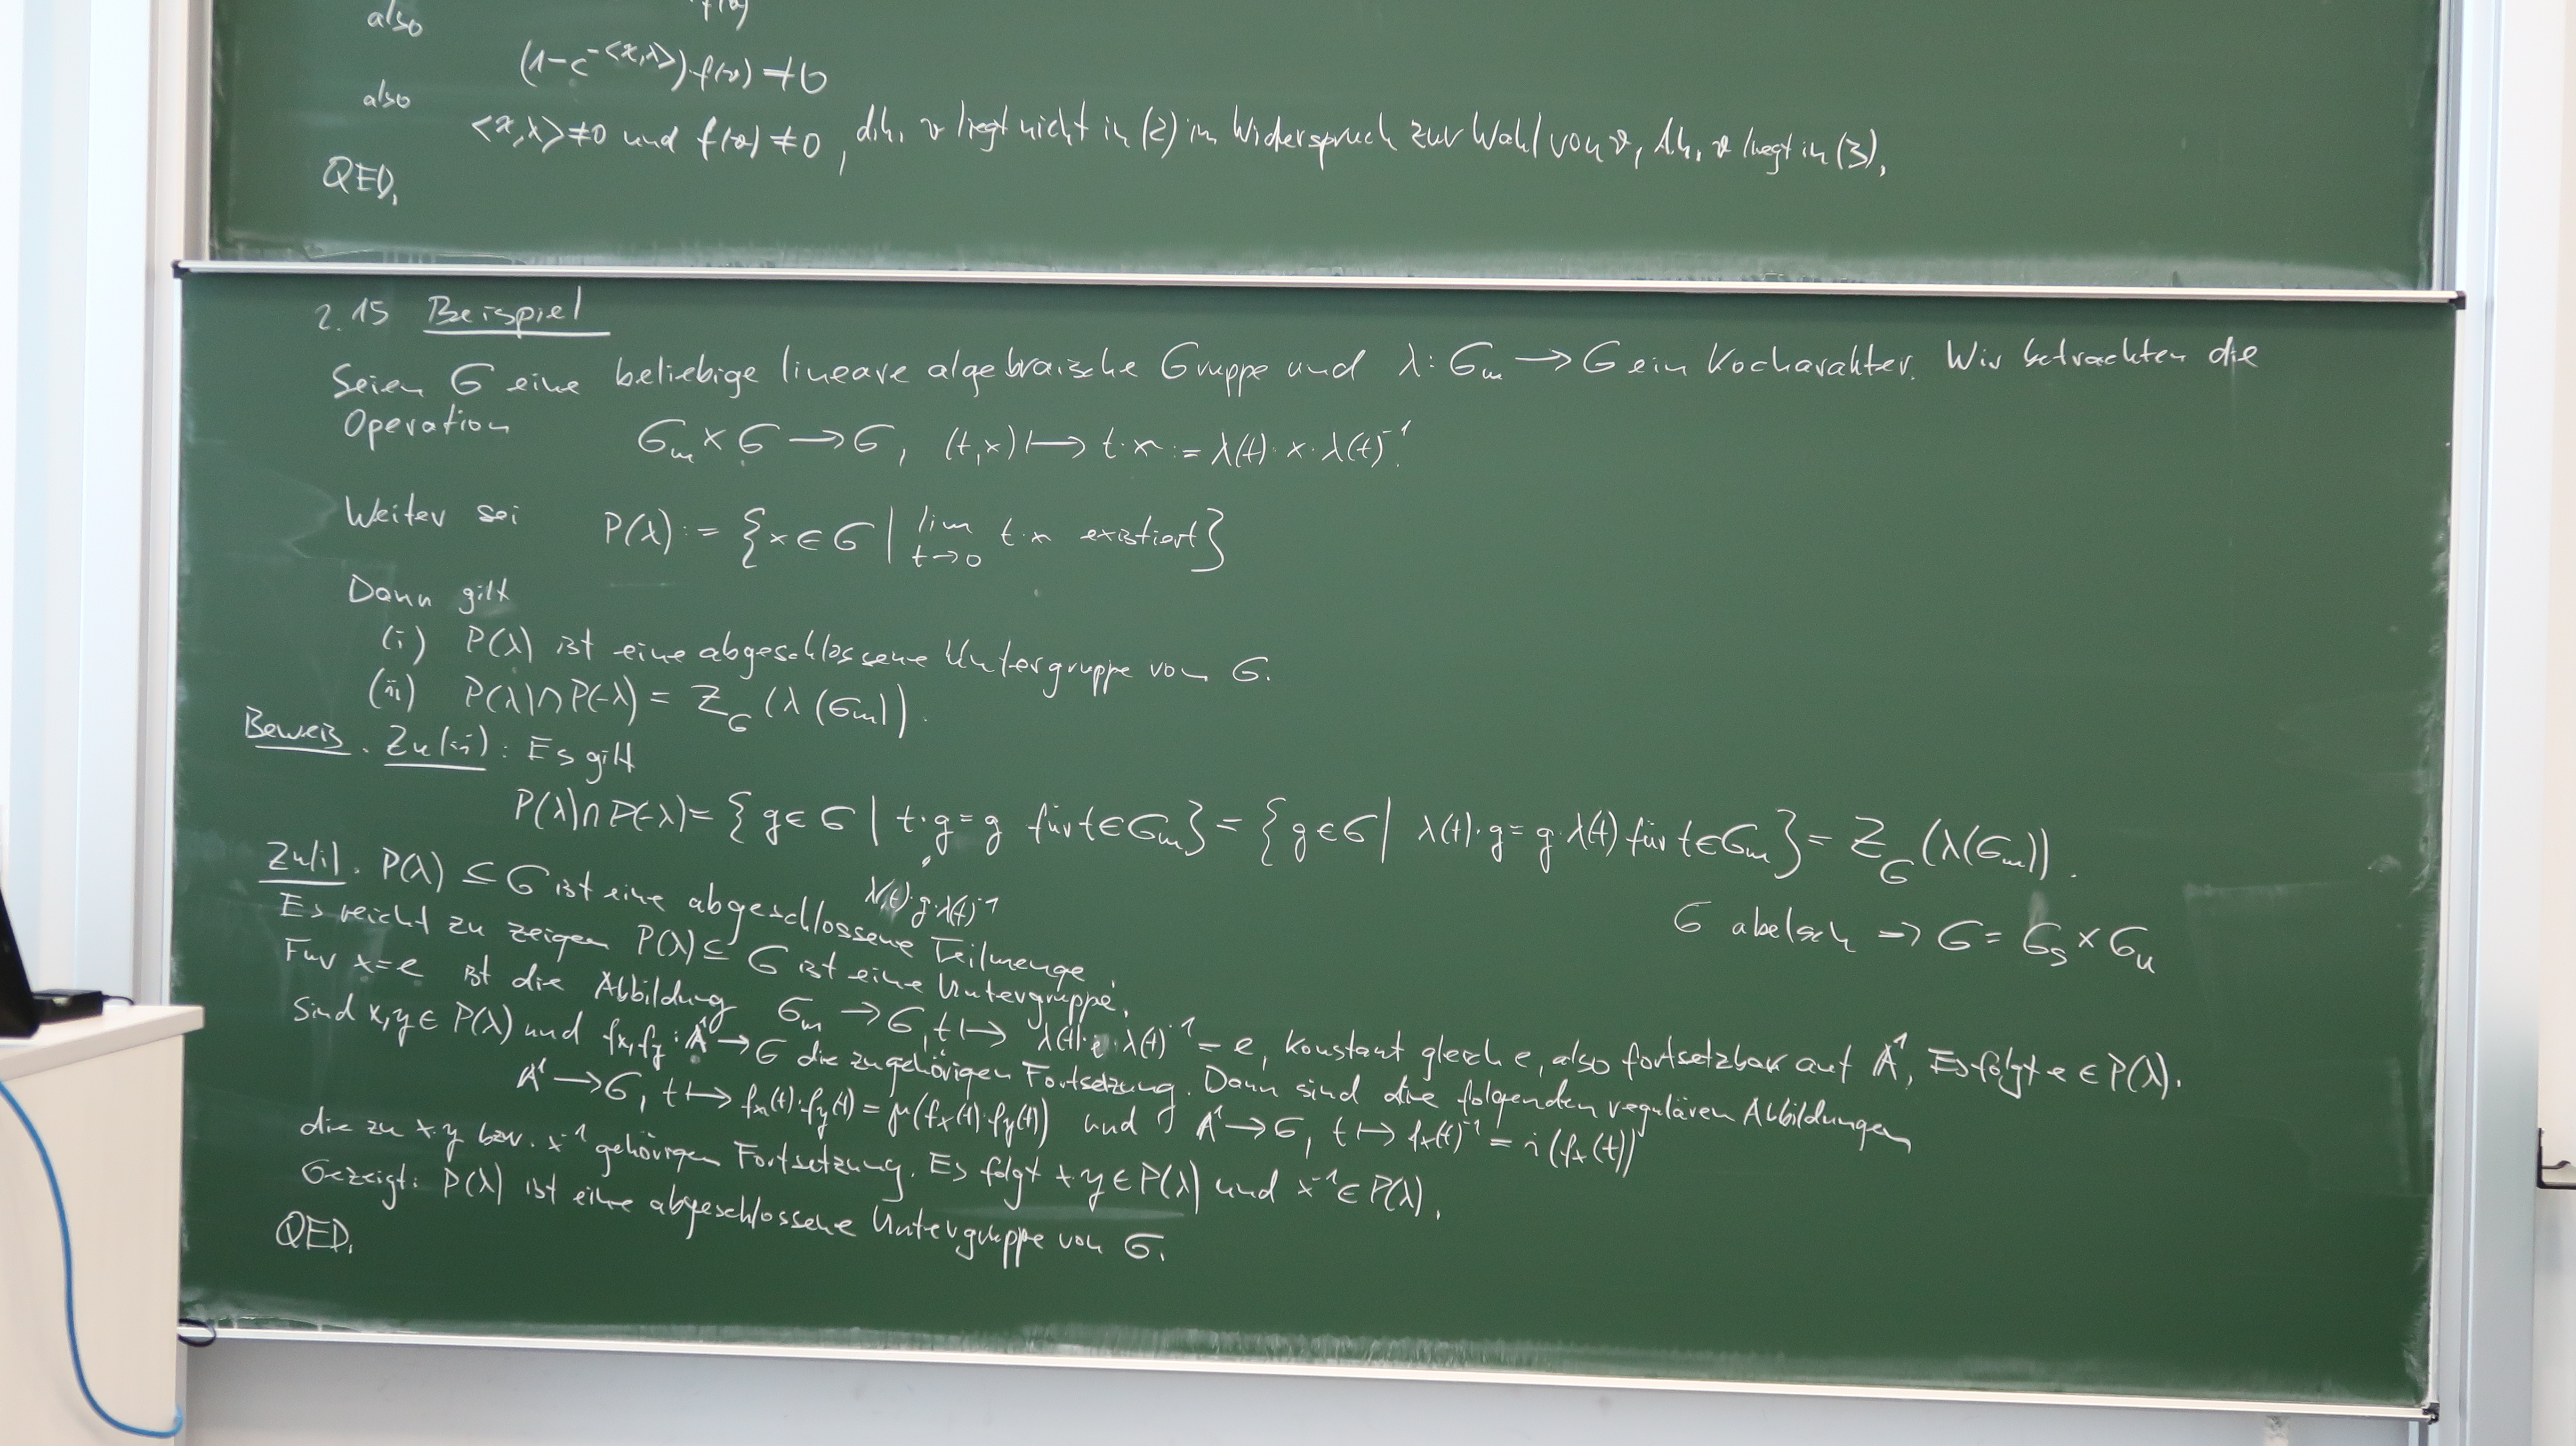 also
(1-c^{-<χ,λ>})·f(v) ≠ 0
also
<χ,λ> ≠ 0 und f(v) ≠ 0, d.h. v liegt nicht in (2) im Widerspruch zur Wahl von v, d.h. v liegt in (3).
QED.
2.15 Beispiel
Seien G eine beliebige lineare algebraische Gruppe und λ: G_m → G ein Kocharakter. Wir betrachten die
Operation G_m × G → G, (t,x) ↦ t·x := λ(t)·x·λ(t)^{-1}.
Weiter sei P(λ) := {x ∈ G | lim_{t→0} t·x existiert}
Dann gilt
(i) P(λ) ist eine abgeschlossene Untergruppe von G.
(ii) P(λ)∩P(-λ) = Z_G(λ(G_m)).
Beweis. Zu (ii): Es gilt
P(λ)∩P(-λ) = {g ∈ G | t·g = g für t ∈ G_m} = {g ∈ G | λ(t)·g = g·λ(t) für t ∈ G_m} = Z_G(λ(G_m)).
λ(t)·g·λ(t)^{-1}
G abelsch → G = G_s × G_u
Zu (i). P(λ) ⊆ G ist eine abgeschlossene Teilmenge.
Es reicht zu zeigen P(λ) ⊆ G ist eine Untergruppe.
Für x=e ist die Abbildung G_m → G, t ↦ λ(t)·e·λ(t)^{-1} = e, konstant gleich e, also fortsetzbar auf A^1. Es folgt e ∈ P(λ).
Sind x,y ∈ P(λ) und f_x, f_y: A^1 → G die zugehörigen Fortsetzung. Dann sind die folgenden regulären Abbildungen
A^1 → G, t ↦ f_x(t)·f_y(t) = μ(f_x(t)·f_y(t)) und A^1 → G, t ↦ f_x(t)^{-1} = i(f_x(t))
die zu x·y bzw. x^{-1} gehörigen Fortsetzung. Es folgt x·y ∈ P(λ) und x^{-1} ∈ P(λ).
Gezeigt: P(λ) ist eine abgeschlossene Untergruppe von G.
QED.